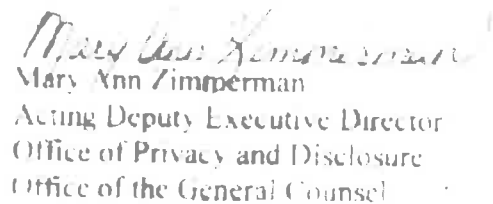 Mary Ann Zimmerman
Mary Ann Zimmerman
Acting Deputy Executive Director
Office of Privacy and Disclosure
Office of the General Counsel